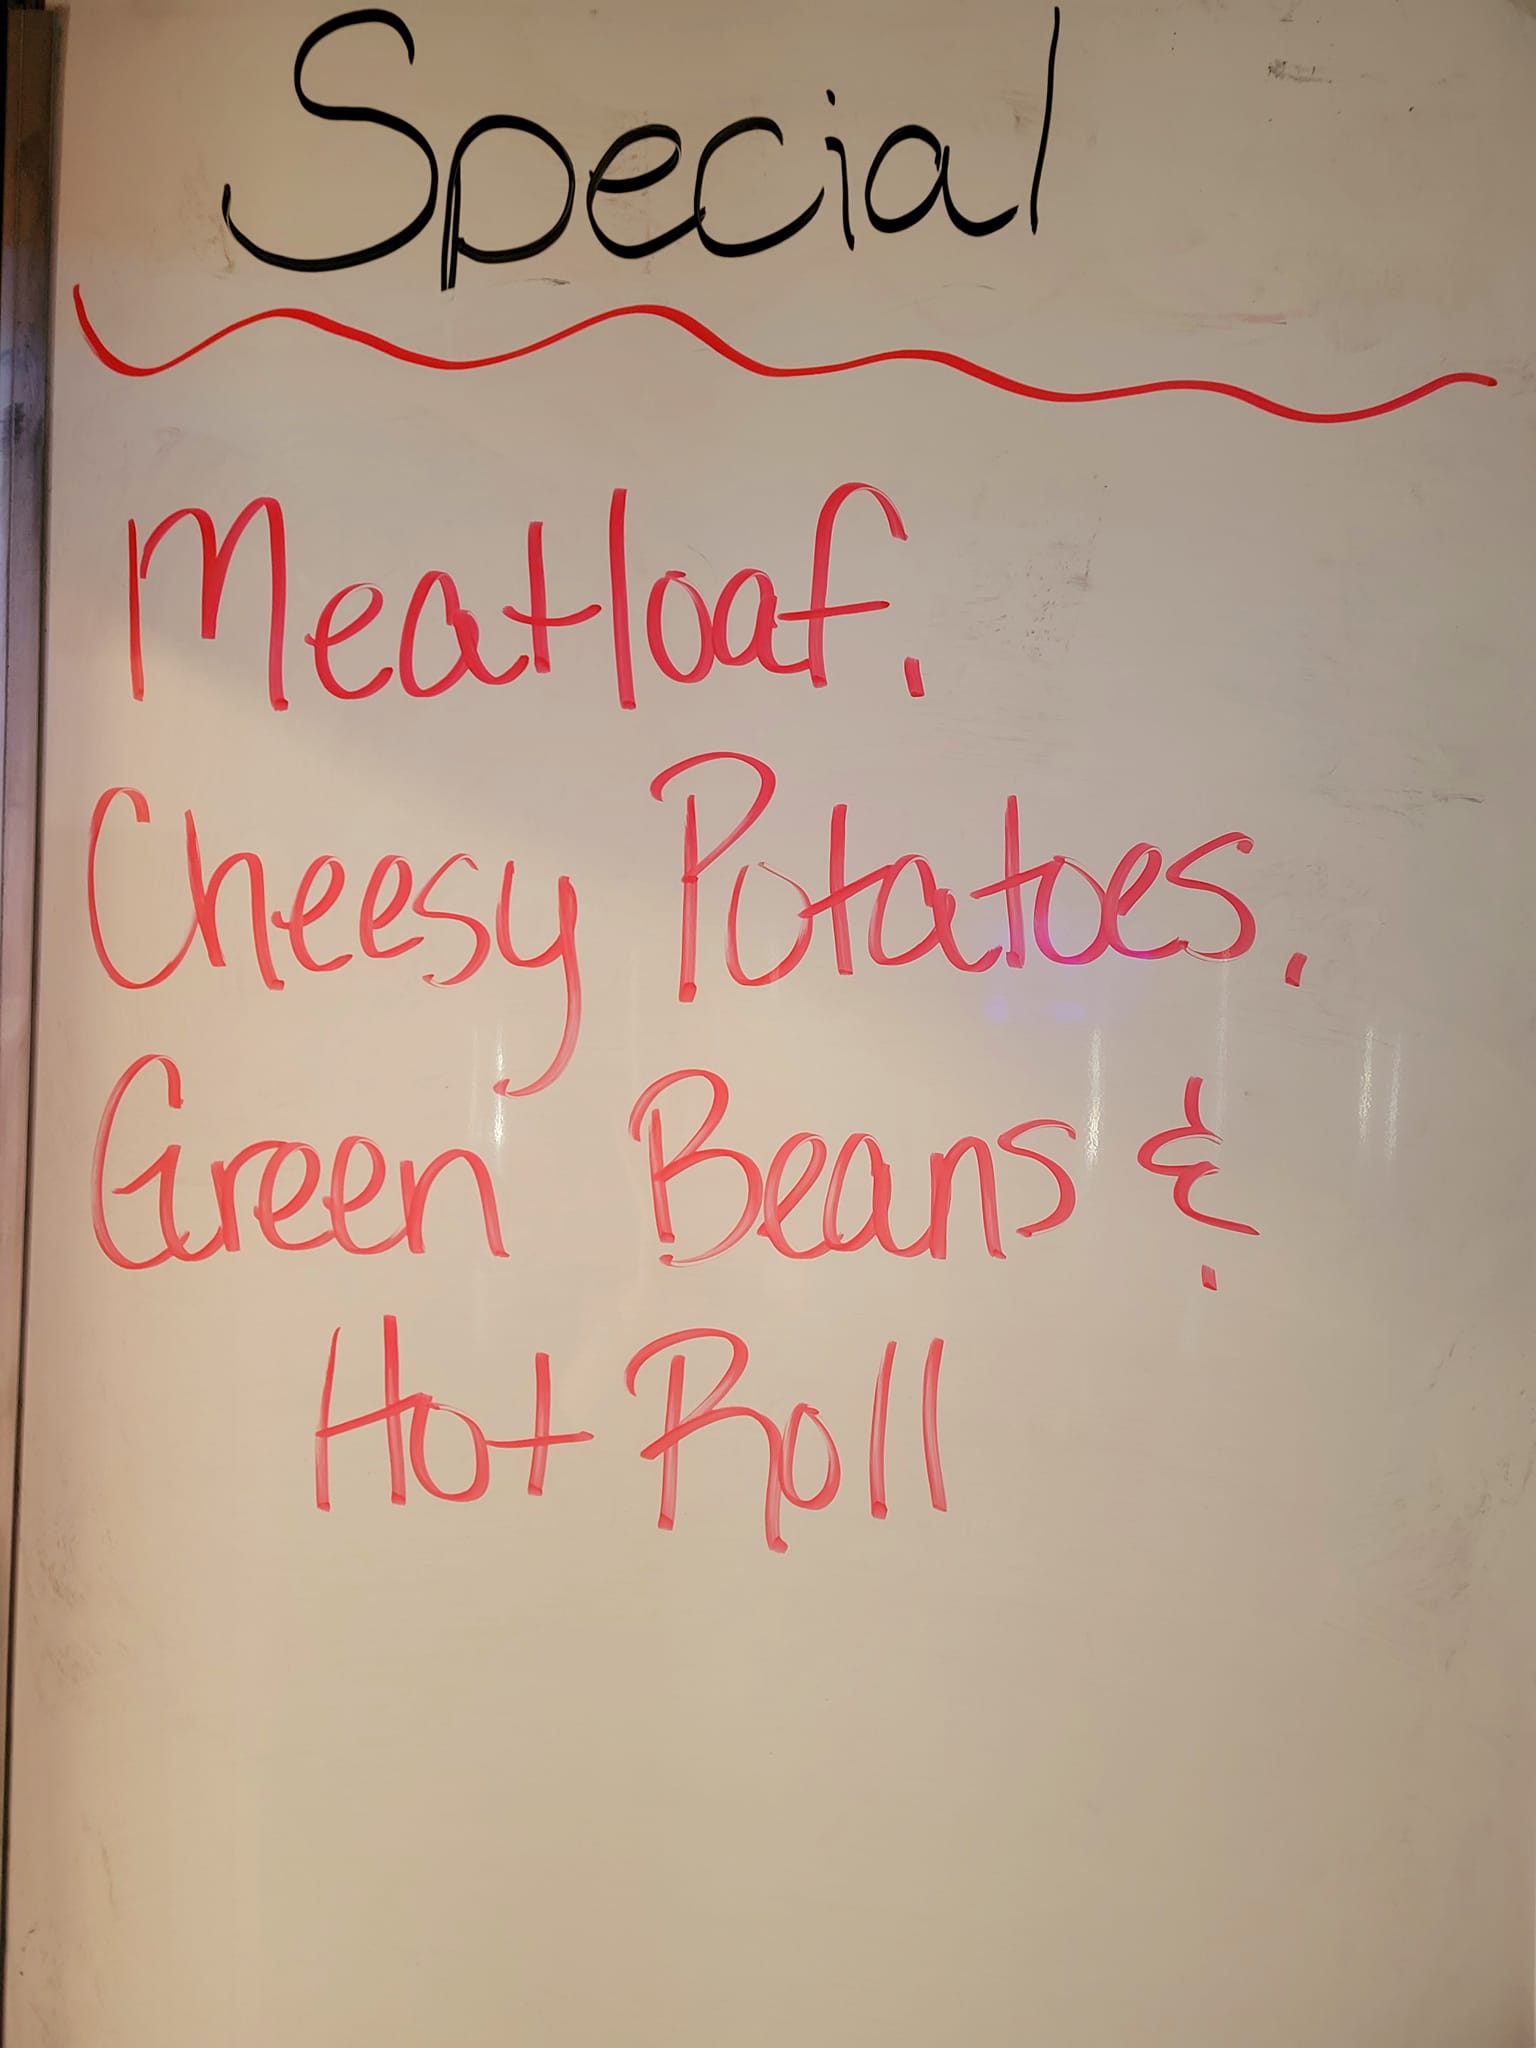 Special
Meatloaf.
Cheesy Potatoes.
Green Beans &
Hot Roll